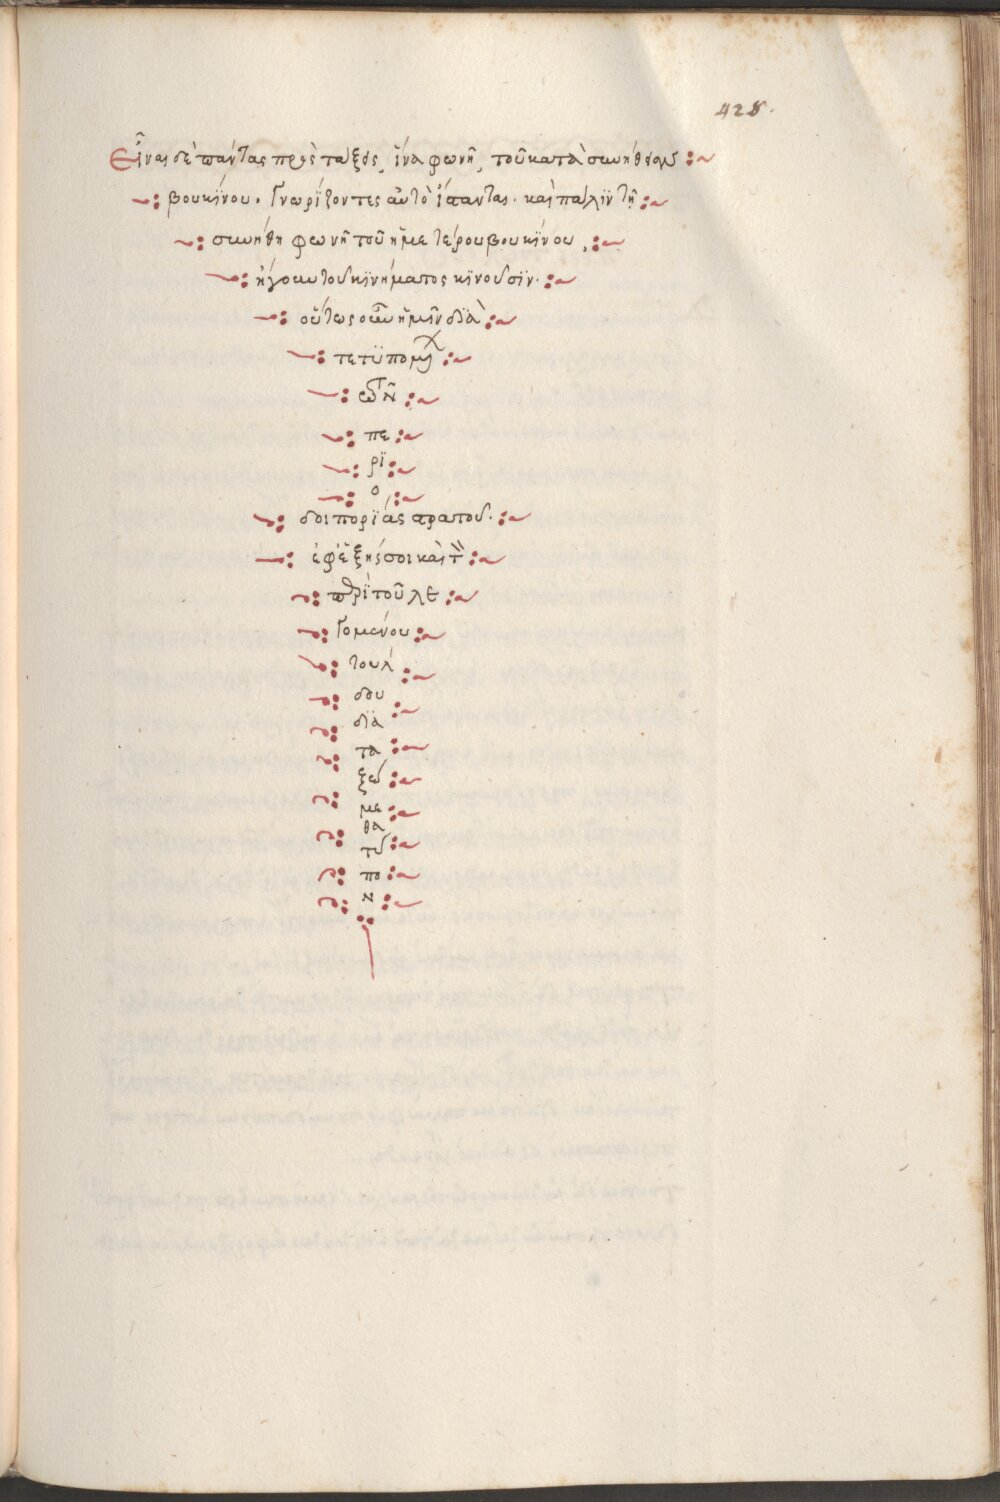 428.
Εἶναι δὲ πάντας πρὸς τάξος, ἵνα φωνῆ, τοῦ κατὰ συνήθειαν
βουκίνου. Γνωρίζοντες αὐτὸ ἅπαντας. καὶ πάλιν τῆ
συνήθη φωνῆ τοῦ ἡμετέρου βουκίνου,
ἡ γουν τοῦ κϊνήματος κϊνοῦσϊν.
οὕτως οὖν ἡμῖν διὰ
τετϋπομ
ων
πε
ρϊ
ο
δοιπορϊας αραποῦ.
ἐφἐξῆς σοι καὶ τ
περὶ τοῦ λε
γομένου
τούλ
δου
δϊα
τα
ξώ
με
θα
τύ
πο
ν